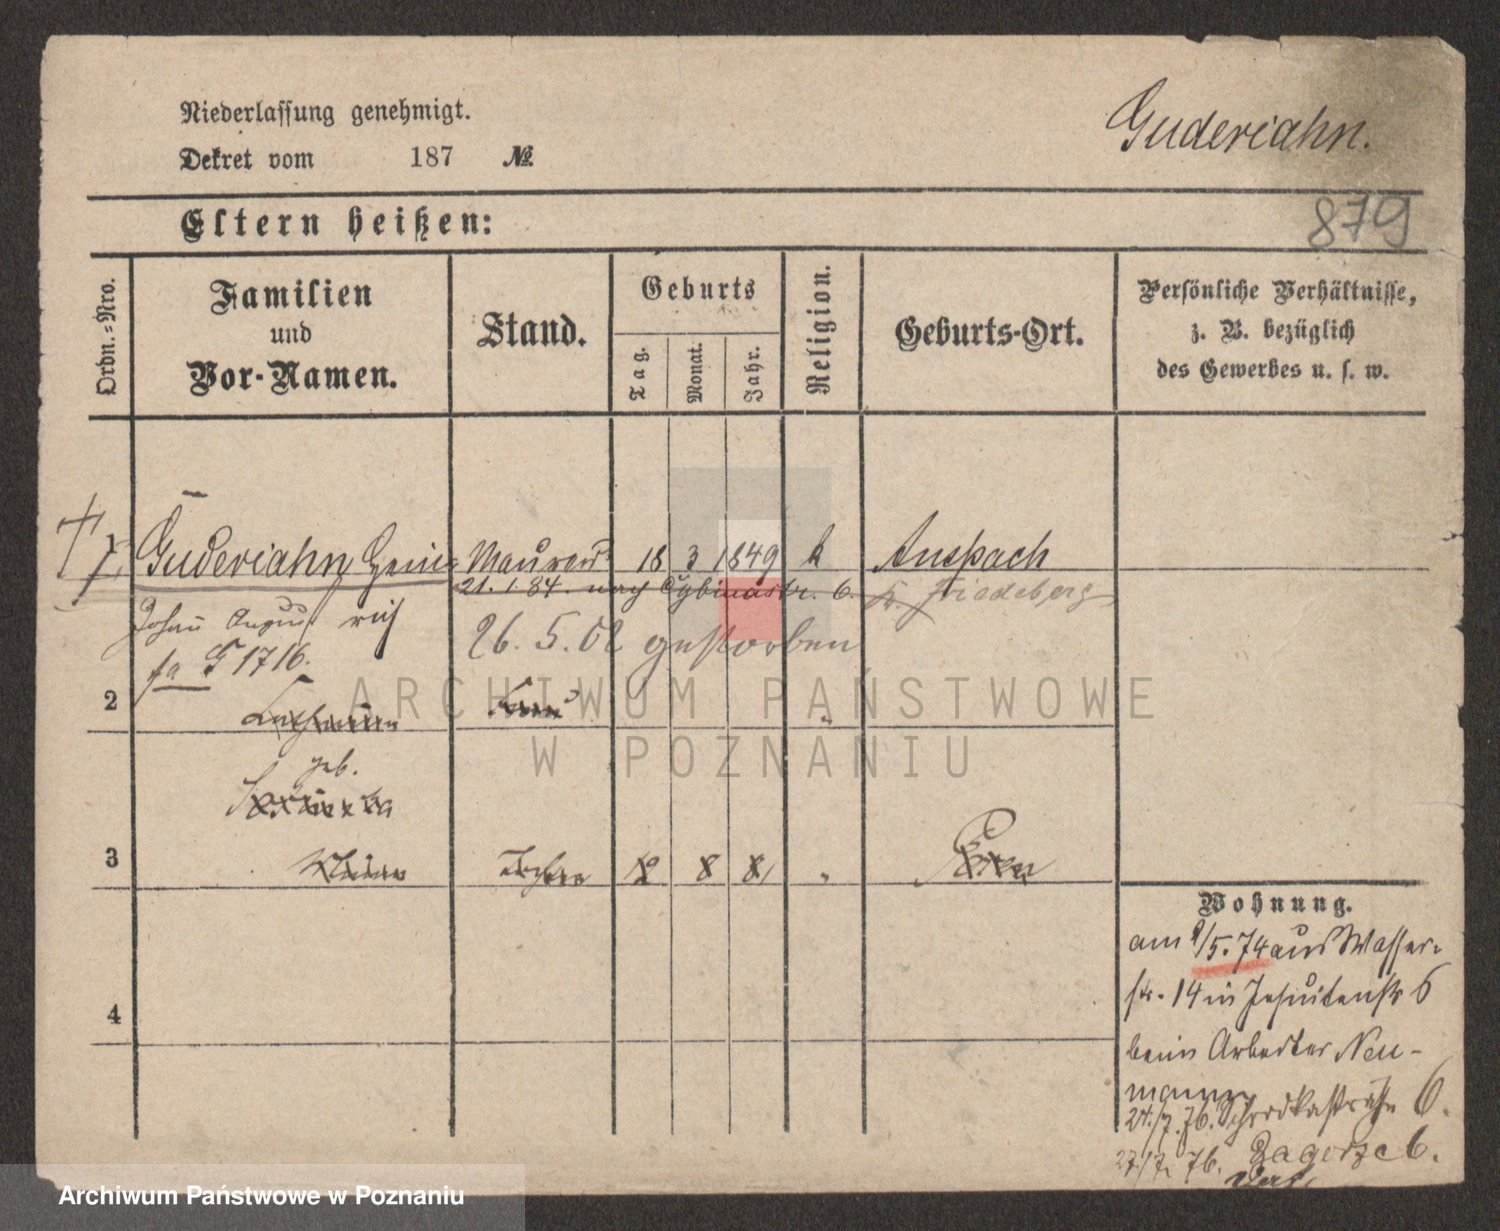 Niederlassung genehmigt.
Dekret vom 187 №
Guderiahn.
Eltern heißen:
879
Ordn.-Nro.
Familien
und
Vor-Namen.
Stand.
Geburts
Tag.
Monat.
Jahr.
Religion.
Geburts-Ort.
Persönliche Verhältnisse,
z. B. bezüglich
des Gewerbes u. s. w.
1 Guderiahn Hein- Maurer 18 3 1849 k Anspach
21.1.84. nach Cybinastr. 6. Kr. Friedeberg
Johann August rich
26. 5. 02 gestorben
fa G 1716.
2
geb.
3
4
Wohnung.
am 9/5.74 aus Wasser-
str. 14 in Jesuitenstr 6
beim Arbeiter Neu-
mann
24./7.76. Schrodkastraße 6.
27/7. 76. Zagorze 6.
ARCHIWUM PAŃSTWOWE
W POZNANIU
Archiwum Państwowe w Poznaniu